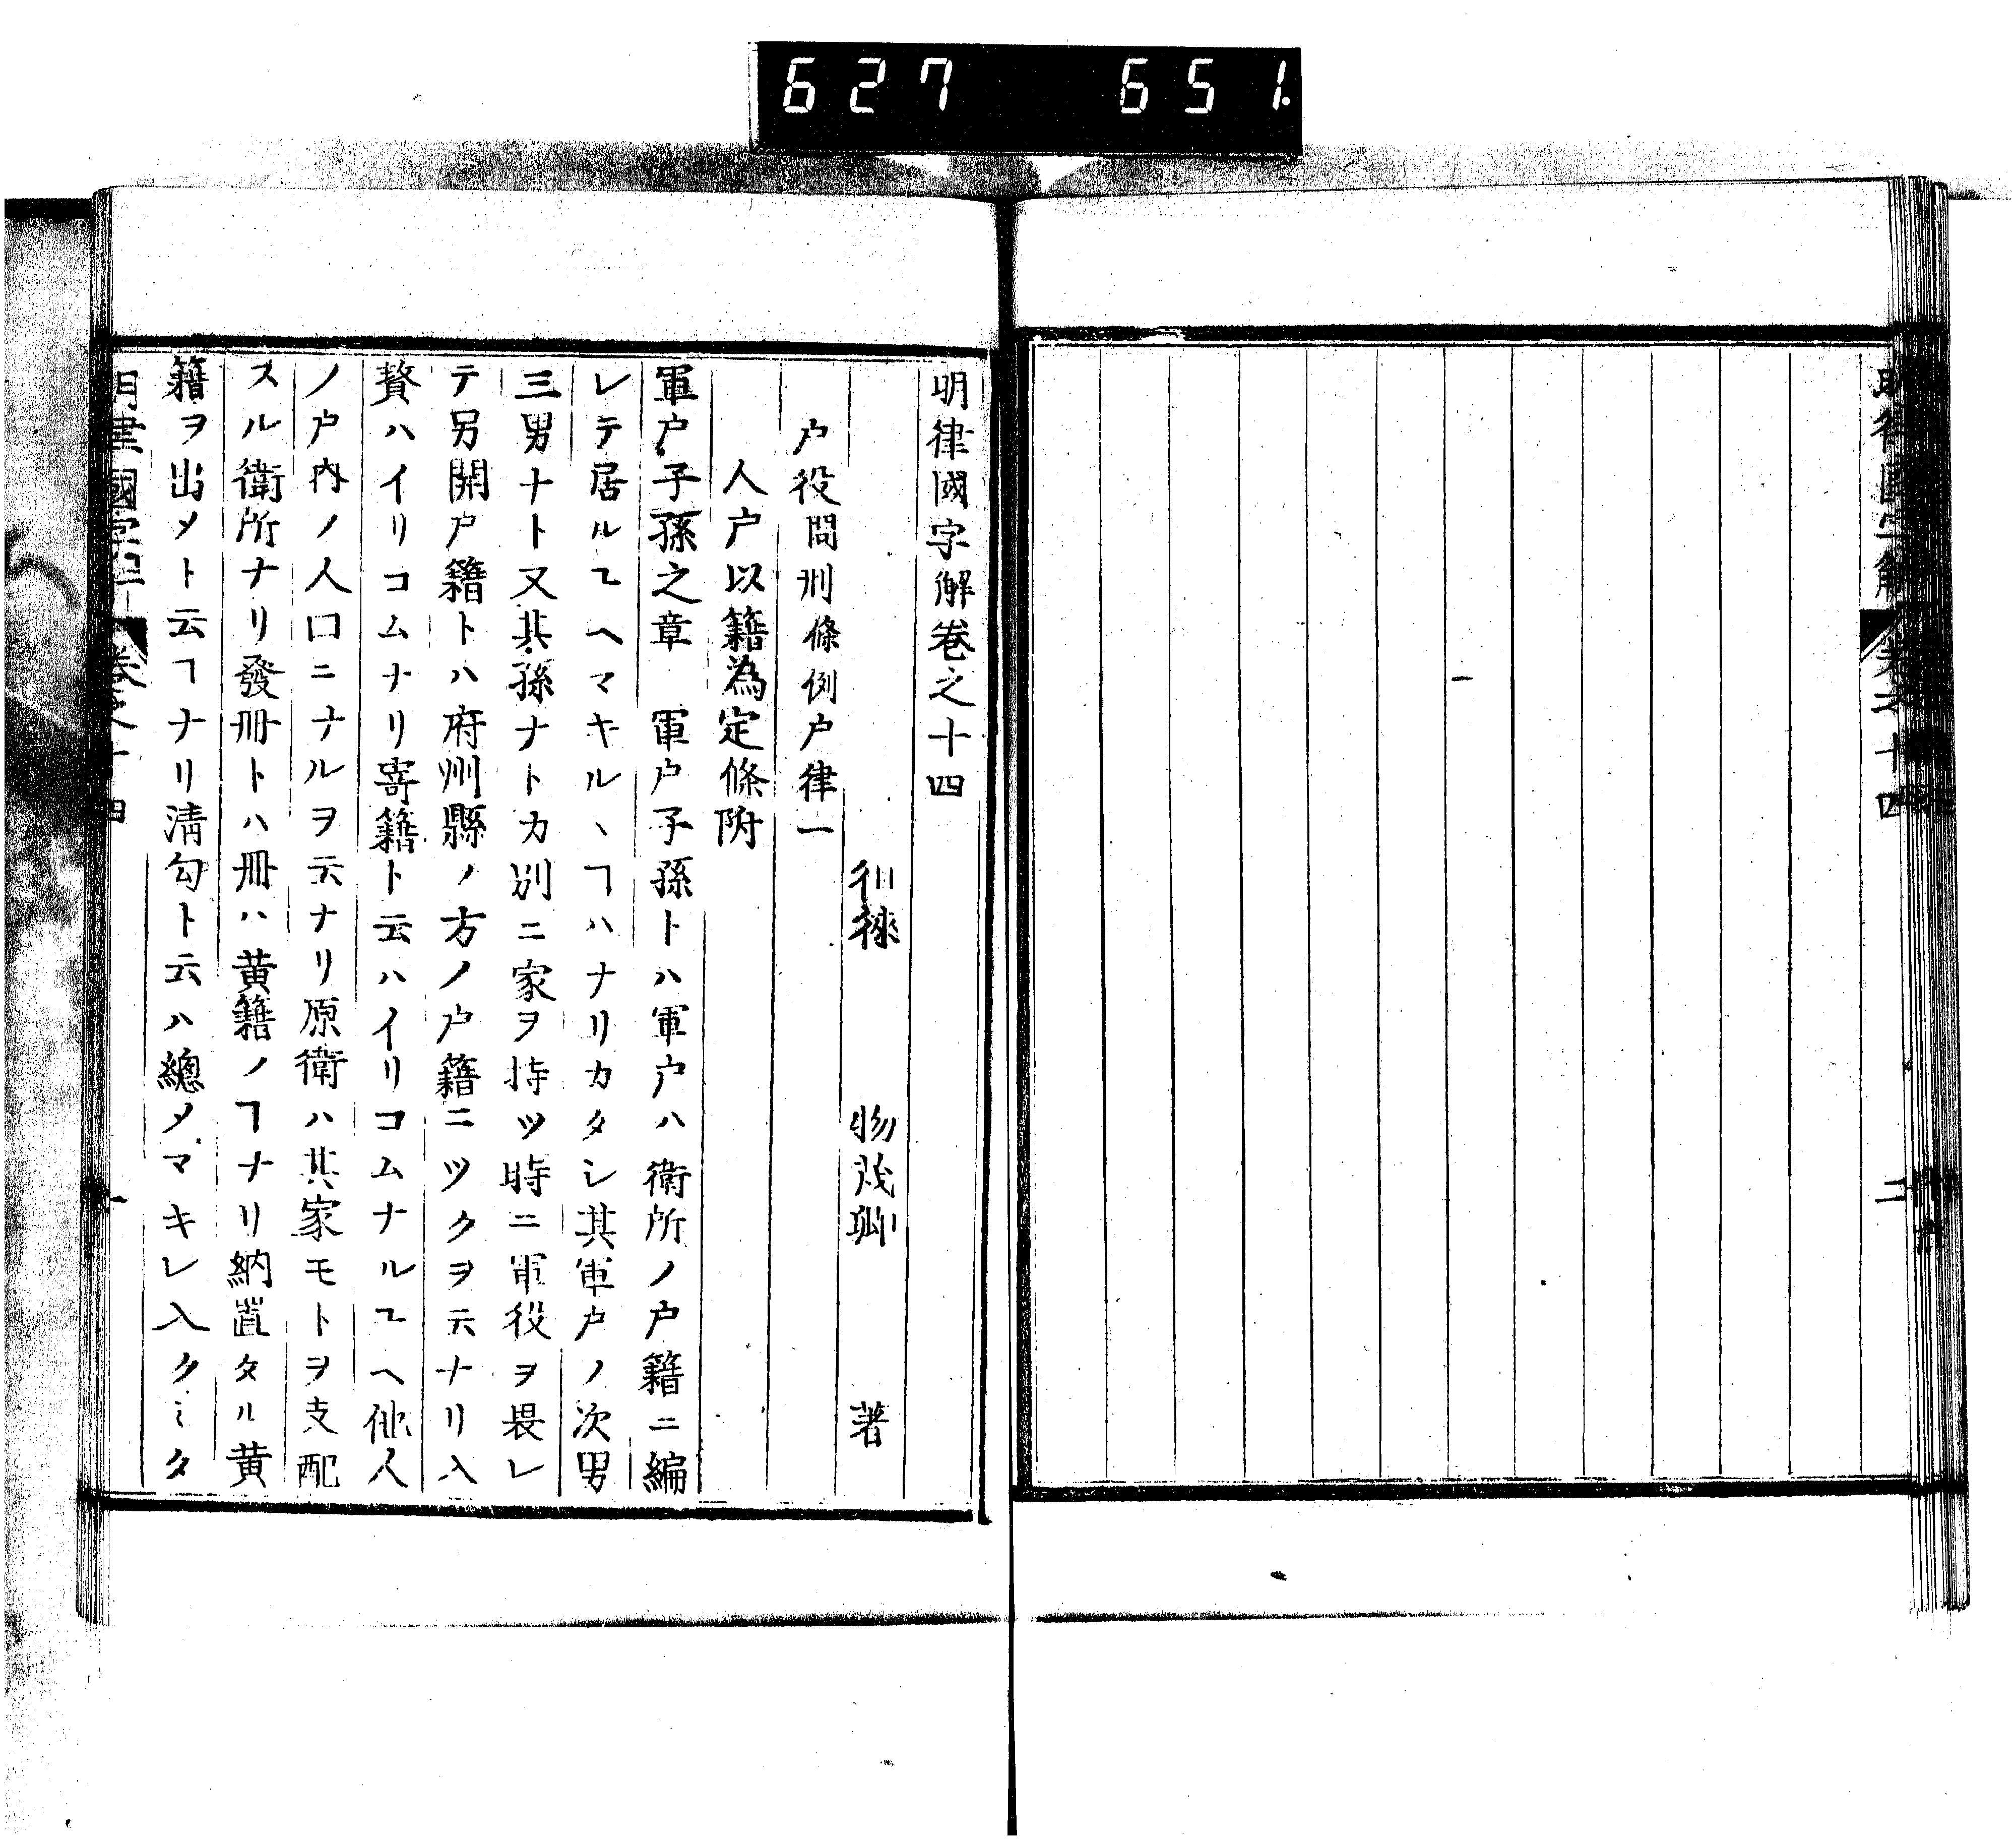 627 651
明律國字解 卷之十四 二
明律國字解卷之十四
徂徠 物茂卿 著
户役問刑條例户律一
人户以籍為定條附
軍户子孫之章 軍户子孫トハ軍户ハ衛所ノ户籍ニ編
レテ居ルユヘマキルヽヿハナリカタシ其軍户ノ次男
三男ナト又其孫ナトカ別ニ家ヲ持ツ時ニ軍役ヲ畏レ
テ另開户籍トハ府州縣ノ方ノ户籍ニツクヲ云ナリ入
贅ハイリコムナリ寄籍ト云ハイリコムナルユヘ他人
ノ户内ノ人口ニナルヲ云ナリ原衛ハ其家モトヲ支配
スル衛所ナリ發冊トハ冊ハ黄籍ノヿナリ納置タル黄
籍ヲ出メト云ヿナリ清勾ト云ハ總メマキレ入クミタ
明律國字解 卷之十四 一